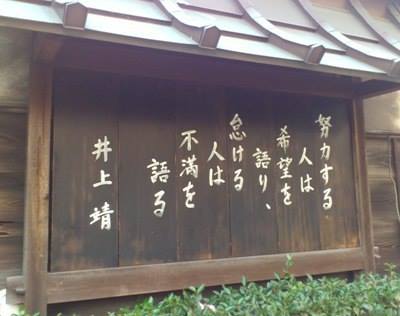 努力する
人は
希望を
語り、
怠ける
人は
不満を
語る
井上靖